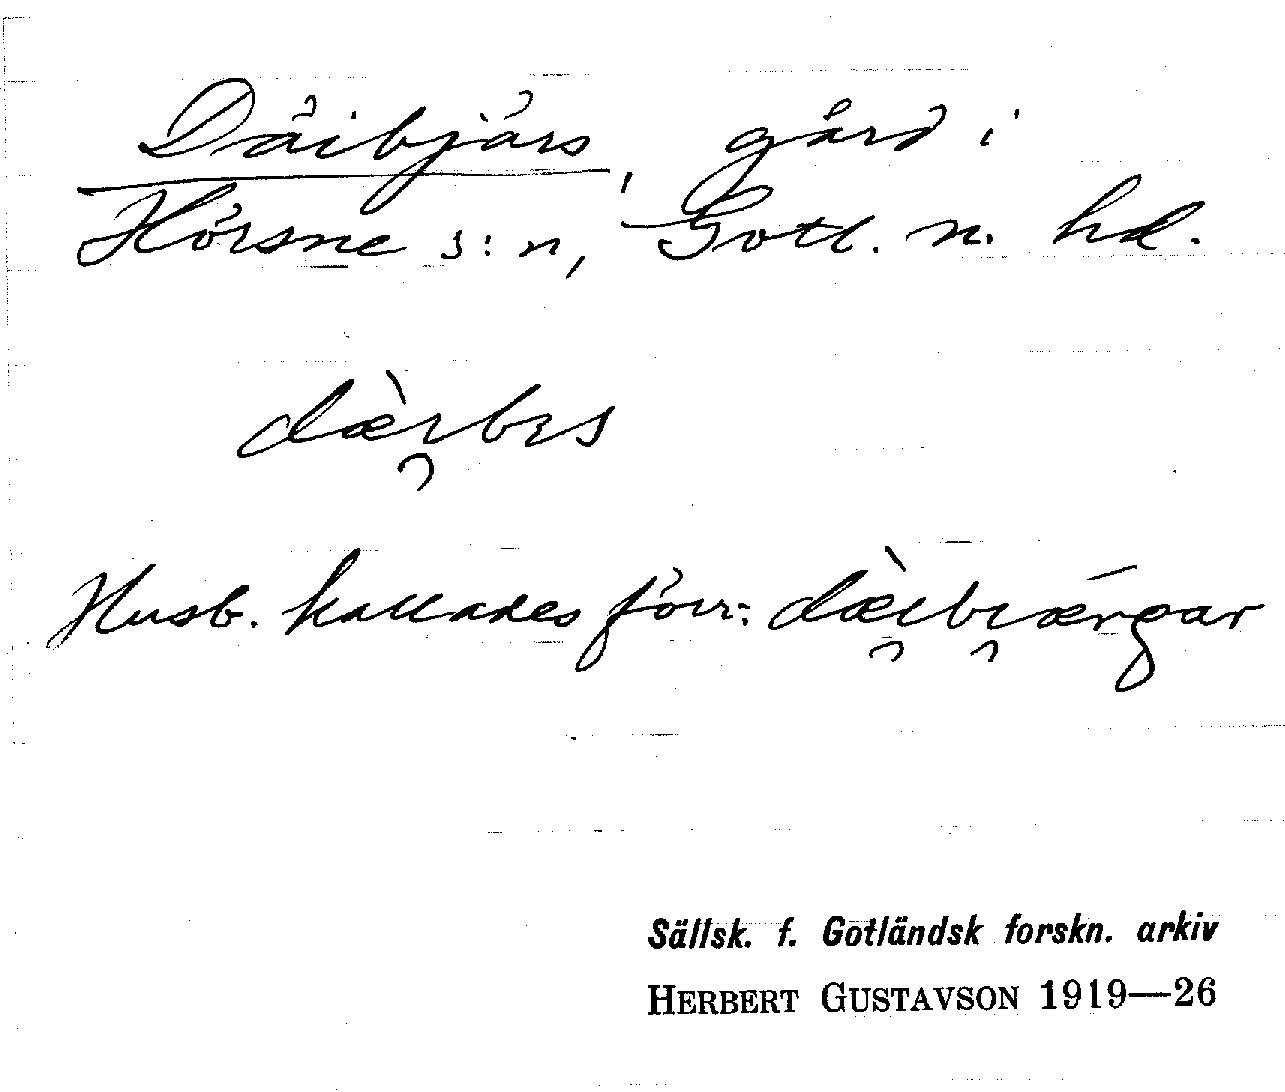 Däibjärs, gård i
Hörsne s:n, Gotl. n. hd.
dæ̀ı̯bıs
Husb. kallades förr: dæ̀ı̯bı̯ærgar
Sällsk. f. Gotländsk forskn. arkiv
HERBERT GUSTAVSON 1919—26